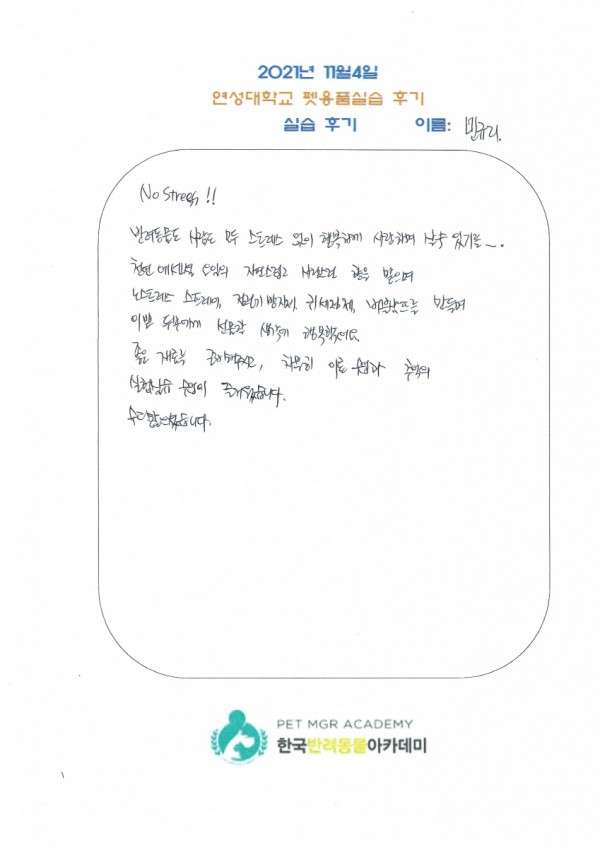 2021년 11월4일
연성대학교 펫용품실습 후기
실습 후기 이름: 민규리.
No Stress !!
반려동물도 사람도 모두 스트레스 없이 행복하게 사랑하며 살수 있기를~.
천연 에센셜 오일의 자연스럽고 향을 맡으며
노스트레스 스프레이, 진드기 방지제, 귀세정제, 만들며
이쁜 두부에게 선물할 생각에 행복했어요
좋은 재료로 차분히 이론 수업과 추억의
실험실습 수업이 즐거웠습니다.
수고많으셨습니다.
PET MGR ACADEMY
한국반려동물아카데미